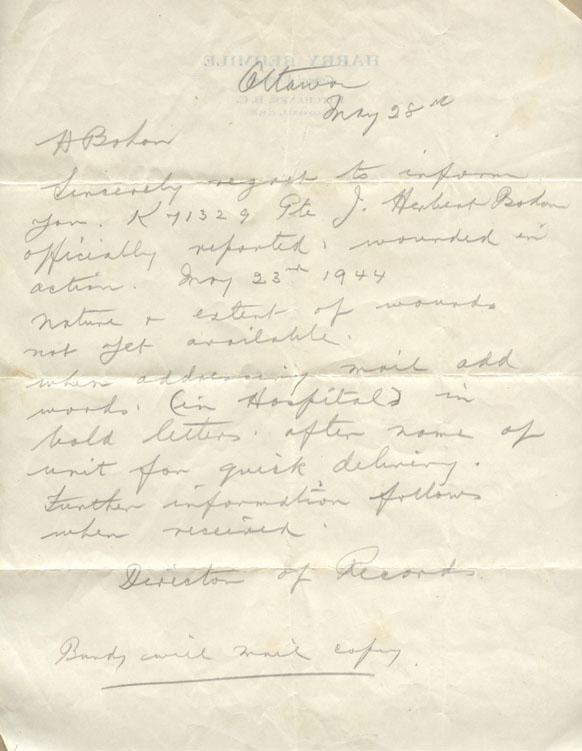 Ottawa
May 28th
H Bohon
Sincerely regret to inform
you. K 71329 Pte J. Herbert Bohon
officially reported, wounded in
action. May 23rd 1944
nature & extent of wounds
not yet available.
when addressing mail add
words. (in Hospital) in
bold letters. after name of
unit for quick delivery.
Further information follows
when received.
Director of Records.
will mail copy.